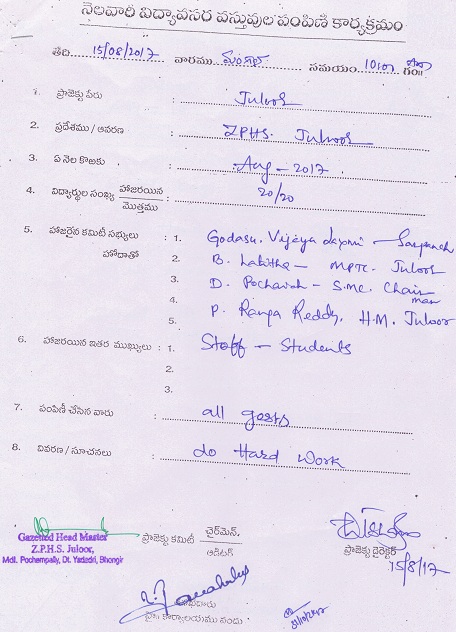 నెలవారి విద్యావసర వస్తువుల పంపిణి కార్యక్రమం
తేది 15/08/2017 వారము మంగళ సమయం 10:00 గం॥
1. ప్రాజెక్టు పేరు : Juloor
2. ప్రదేశము / ఆవరణ : Z.P.H.S. Juloor
3. ఏ నెల కొఱకు : Aug - 2017
4. విద్యార్థుల సంఖ్య హాజరయిన / మొత్తము : 20/20
5. హాజరైన కమిటీ సభ్యులు : 1. Godasu. Vijaya Laxmi - Sarpanch
హోదాతో 2. B. Lalitha - MPTC. Juloor
3. D. Pochaiah - S.MC. Chair
4. man
5. P. Ranga Reddy, H.M. Juloor
6. హాజరయిన ఇతర ముఖ్యులు : 1. Staff - Students
2.
3.
7. పంపిణీ చేసిన వారు : all gests
8. వివరణ / సూచనలు : do Hard Work
Gazetted Head Master
Z.P.H.S. Juloor,
Mdl. Pochampally, Dt. Yadadri, Bhongir
ప్రాజెక్టు కమిటీ చైర్మెన్, / ఆడిటర్
ప్రాజెక్టు డైరెక్టర్
15/8/17
కార్యాలయము నందు